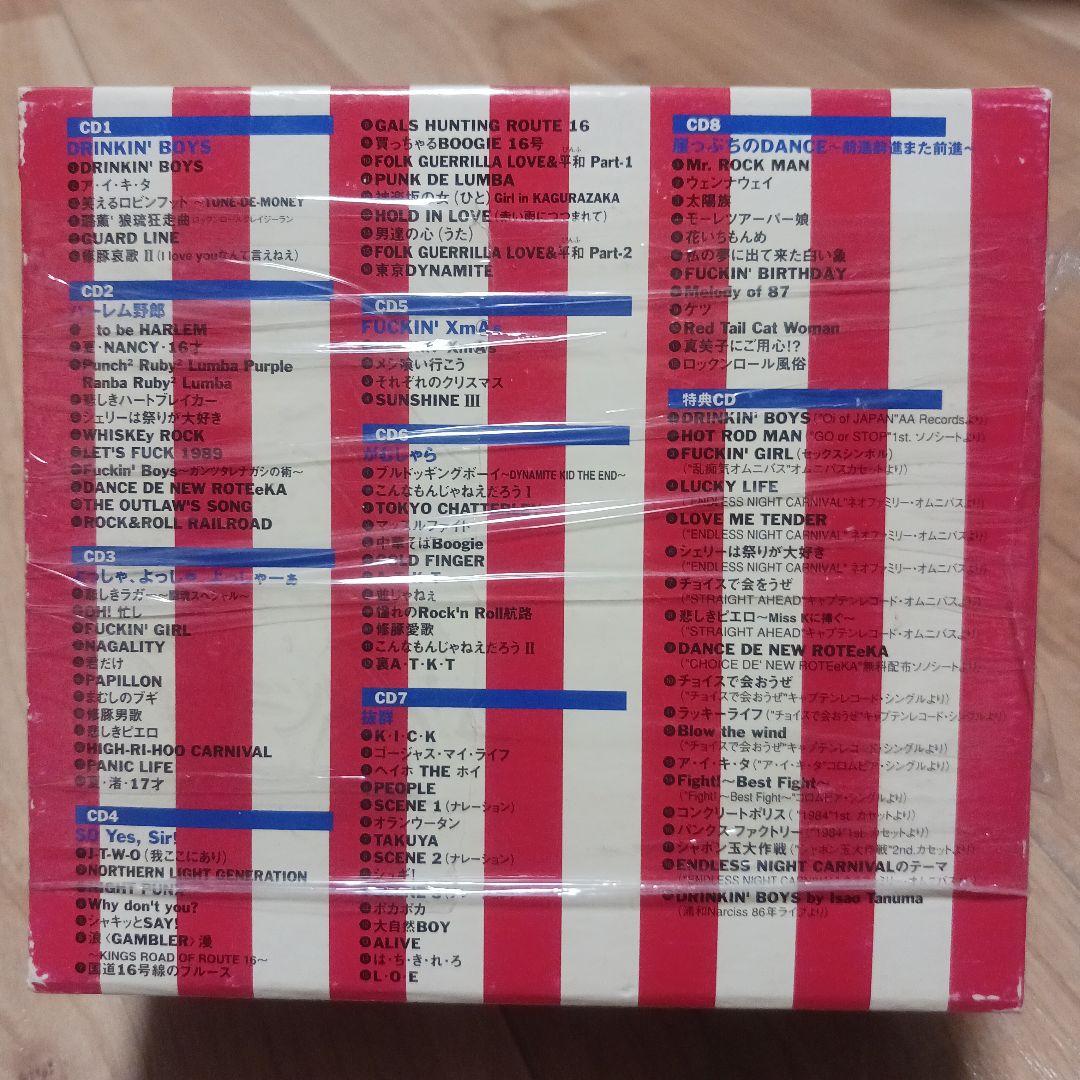 CD1
DRINKIN' BOYS
❶DRINKIN' BOYS
❷ア・イ・キ・タ
❸笑えるロビンフット ～TUNE-DE-MONEY
狼琉狂走曲
❺GUARD LINE
❻修豚哀歌 II (I love youなんて言えねえ)
CD2
ハーレム野郎
to be HARLEM
❷夏・NANCY・16才
❸Punch² Ruby² Lumba Purple
Ranba Ruby² Lumba
❹悲しきハートブレイカー
❺シェリーは祭りが大好き
❻WHISKEy ROCK
❼LET'S FUCK 1989
❽Fuckin' Boys～ガンツタレナガシの術～
❾DANCE DE NEW ROTEeKA
❿THE OUTLAW'S SONG
⓫ROCK&ROLL RAILROAD
CD3
よっしゃ、よっしゃ、よっしゃーぁ
❶悲しきラガー～闘魂スペシャル～
❷OH! 忙し
❸FUCKIN' GIRL
❹NAGALITY
❺君だけ
❻PAPILLON
❼まむしのブギ
❽修豚男歌
❾悲しきピエロ
❿HIGH-RI-HOO CARNIVAL
⓫PANIC LIFE
⓬夏・渚・17才
CD4
SO Yes, Sir!
❶J-T-W-O (我ここにあり)
❷NORTHERN LIGHT GENERATION
❸NIGHT PUNX
❹Why don't you?
❺シャキッとSAY!
❻浪〈GAMBLER〉漫
～KINGS ROAD OF ROUTE 16～
❼国道16号線のブルース
❽GALS HUNTING ROUTE 16
❾買っちゃるBOOGIE 16号
❿FOLK GUERRILLA LOVE&平和 Part-1
⓫PUNK DE LUMBA
⓬神楽坂の女 (ひと) Girl in KAGURAZAKA
⓭HOLD IN LOVE (赤い雨につつまれて)
⓮男達の心 (うた)
⓯FOLK GUERRILLA LOVE&平和 Part-2
⓰東京DYNAMITE
CD5
FUCKIN' XmAs
XmAs
❷メシ喰い行こう
❸それぞれのクリスマス
❹SUNSHINE III
CD6
がむしゃら
❶ブルドッギングボーイ～DYNAMITE KID THE END～
❷こんなもんじゃねえだろう I
❸TOKYO CHATTERLEY
❹マッスルファイト
❺中華そばBoogie
❻GOLD FINGER
じゃねぇ
❾憧れのRock'n Roll航路
❿修豚愛歌
⓫こんなもんじゃねえだろう II
⓬裏A・T・K・T
CD7
抜群
❶K・I・C・K
❷ゴージャス・マイ・ライフ
❸ヘイホ THE ホイ
❹PEOPLE
❺SCENE 1 (ナレーション)
❻オランウータン
❼TAKUYA
❽SCENE 2 (ナレーション)
❾シュギ!
⓫ポカポカ
⓬大自然BOY
⓭ALIVE
⓮は・ち・き・れ・ろ
⓯L・O・E
CD8
崖っぷちのDANCE～前進前進また前進～
❶Mr. ROCK MAN
❷ウェンナウェイ
❸太陽族
❹モーレツアーパー娘
❺花いちもんめ
❻私の夢に出て来た白い象
❼FUCKIN' BIRTHDAY
❽Melody of 87
❾ケツ
❿Red Tail Cat Woman
⓫真芙子にご用心!?
⓬ロックンロール風俗
特典CD
❶DRINKIN' BOYS ("Oi of JAPAN"AA Recordsより)
❷HOT ROD MAN ("GO or STOP"1st. ソノシートより)
❸FUCKIN' GIRL (セックスシンボル)
("乱痴気オムニバス"オムニバスカセットより)
❹LUCKY LIFE
("ENDLESS NIGHT CARNIVAL"ネオファミリー・オムニバスより)
❺LOVE ME TENDER
("ENDLESS NIGHT CARNIVAL"ネオファミリー・オムニバスより)
❻シェリーは祭りが大好き
("ENDLESS NIGHT CARNIVAL"ネオファミリー・オムニバスより)
❼チョイスで会をうぜ
("STRAIGHT AHEAD"キャプテンレコード・オムニバスより)
❽悲しきピエロ～Miss Kに捧ぐ～
("STRAIGHT AHEAD"キャプテンレコード・オムニバスより)
❾DANCE DE NEW ROTEeKA
("CHOICE DE' NEW ROTEeKA"無料配布ソノシートより)
❿チョイスで会おうぜ
("チョイスで会おうぜ"キャプテンレコード・シングルより)
⓫ラッキーライフ ("チョイスで会おうぜ"キャプテンレコード・シングルより)
⓬Blow the wind
("チョイスで会おうぜ"キャプテンレコード・シングルより)
⓭ア・イ・キ・タ ("ア・イ・キ・タ"コロムビア・シングルより)
⓮Fight!～Best Fight～
("Fight!～Best Fight～"コロムビア・シングルより)
⓯コンクリートポリス ("1984"1st. カセットより)
⓰パンクス・ファクトリー ("1984"1st. カセットより)
⓱シャボン玉大作戦 ("シャボン玉大作戦"2nd.カセットより)
⓲ENDLESS NIGHT CARNIVALのテーマ
("ENDLESS NIGHT CARNIVAL"ネオファミリー・オムニバスより)
⓳DRINKIN' BOYS by Isao Tanuma
(浦和Narciss 86年ライブより)